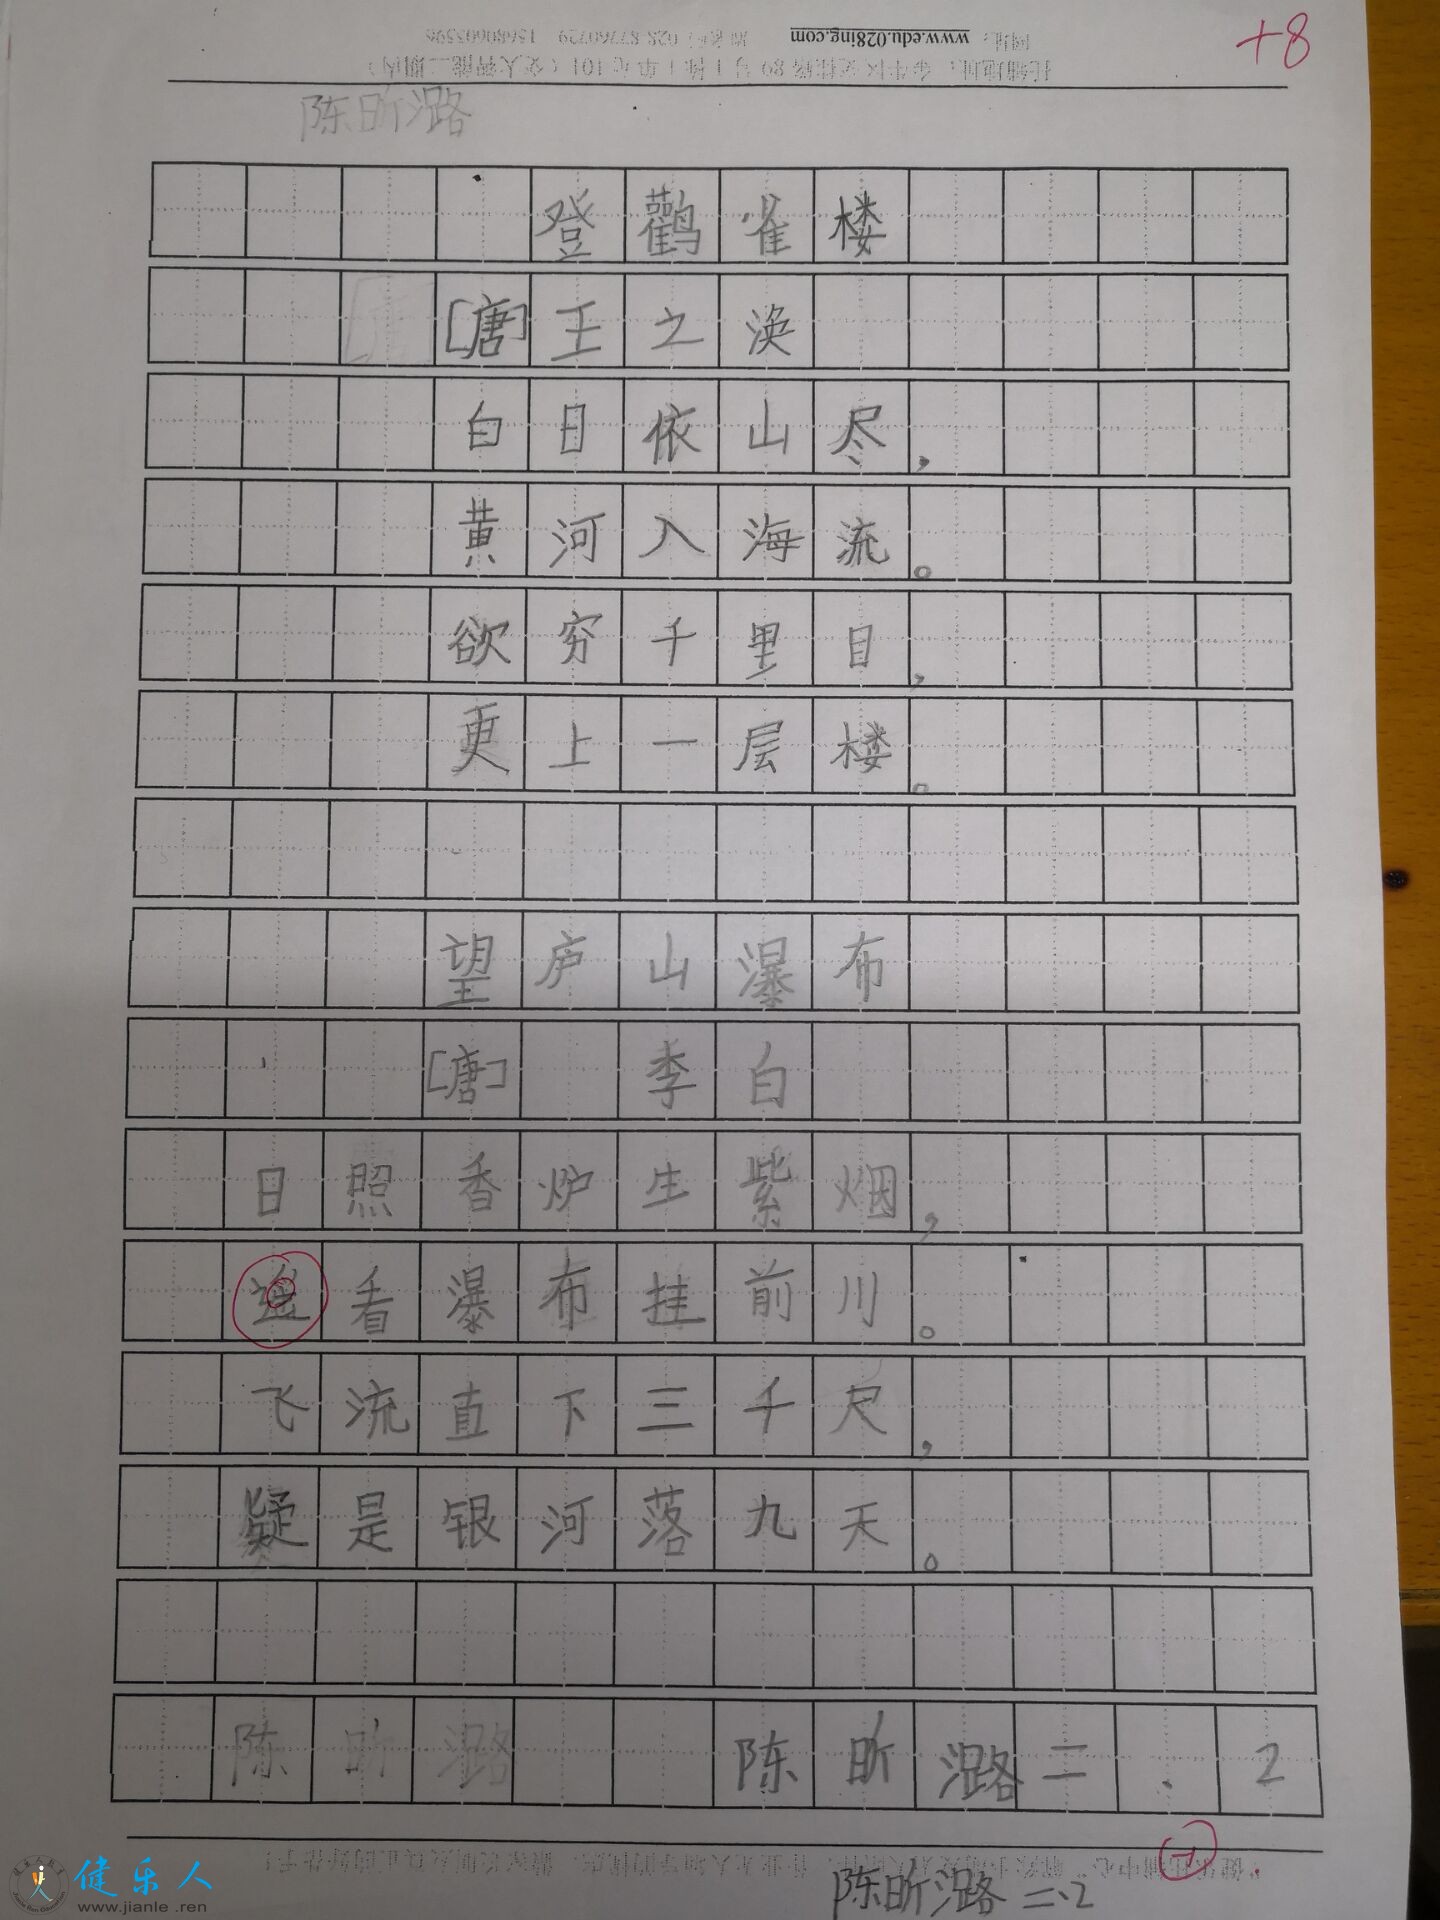 +8
www.edu.028ing.com
陈昕潞
登鹳雀楼
[唐]王之涣
白日依山尽，
黄河入海流。
欲穷千里目，
更上一层楼。
望庐山瀑布
[唐] 李白
日照香炉生紫烟，
看瀑布挂前川。
飞流直下三千尺，
疑是银河落九天。
陈昕潞 陈昕潞二.2
陈昕潞二.2
健乐人
www.jianle.ren